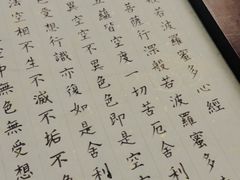 般若波羅蜜多心經
菩薩行深般若波羅蜜多
五蘊皆空度一切苦厄舍利
空不異色色即是空
受想行識亦復如是舍利
法空相不生不滅不垢不
中無色無受想